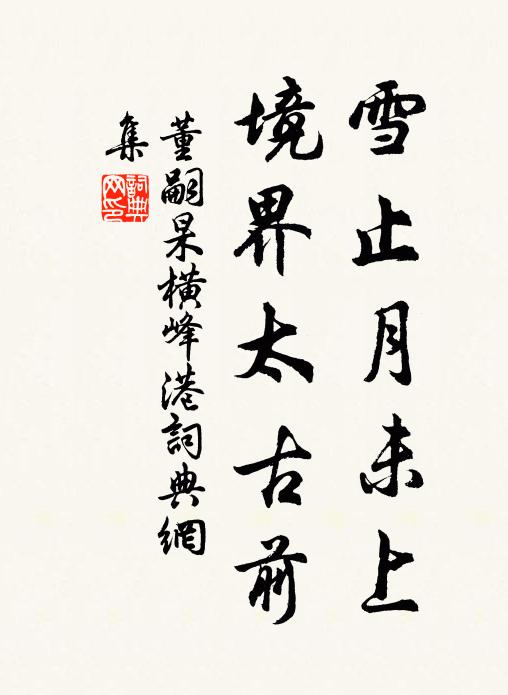 雪止月未上
境界太古前
董嗣杲橫峰港詞典網
集
詞典
网印